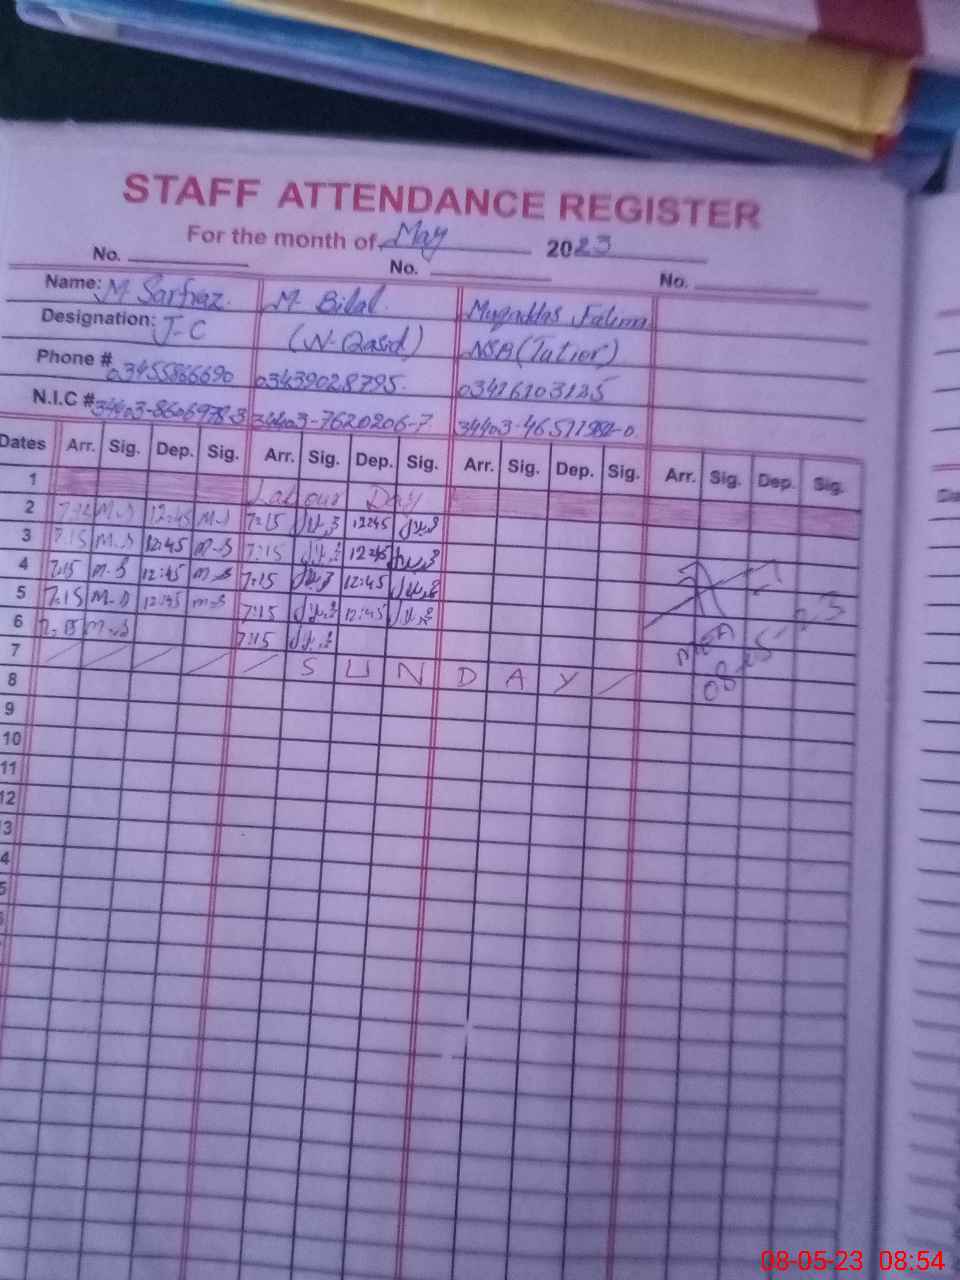 STAFF ATTENDANCE REGISTER
For the month of May 2023
No. No. No.
Name: M Sarfraz. M. Bilal. Muqaddas Fatima
Designation: J-C (N-Qasid) NSA (Tutier)
Phone # 03455866690 03439028795. 03416103135
N.I.C # 34403-8606978-3 34403-7620206-7
Dates Arr. Sig. Dep. Sig. Arr. Sig. Dep. Sig. Arr. Sig. Dep. Sig. Arr. Sig. Dep. Sig.
1 Labour Day
2 M-S 12:45 M-S 7:15 12:45
3 7:15 M-S 12:45 m-S 7:15 12:45
4 7:15 m-S 12:45 m-S 7:15 12:45
5 7:15 M-S 12:45 m-S 7:15 12:45
6 7:15 m-S 7:15
7 S U N D A Y
8 MEA
08-05-23
9
10
11
12
3
4
5
08-05-23 08:54